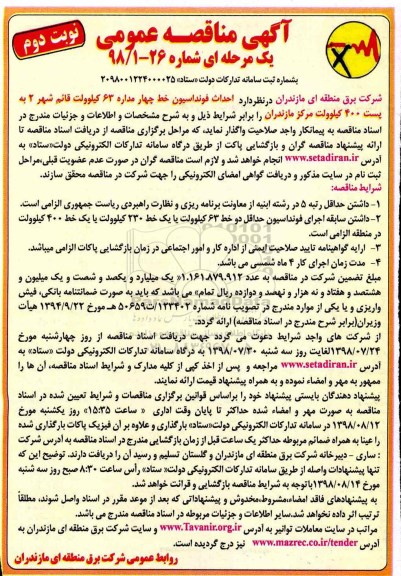 آگهی مناقصه عمومی
نوبت دوم
یک مرحله ای شماره ۲۶-۹۸/۱
بشماره ثبت سامانه تدارکات دولت «ستاد» ۲۰۹۸۰۰۱۲۲۴۰۰۰۰۲۵
شرکت برق منطقه ای مازندران درنظردارد احداث فونداسیون خط چهار مداره ۶۳ کیلوولت قائم شهر ۲ به
پست ۴۰۰ کیلوولت مرکز مازندران را برابر شرایط ذیل و به شرح مشخصات و اطلاعات و جزئیات مندرج در
اسناد مناقصه به پیمانکار واجد صلاحیت واگذار نماید، که مراحل برگزاری مناقصه از دریافت اسناد مناقصه تا
ارائه پیشنهاد مناقصه گران و بازگشایی پاکت از طریق درگاه سامانه تدارکات الکترونیکی دولت«ستاد» به
آدرس www.setadiran.ir انجام خواهد شد و لازم است مناقصه گران در صورت عدم عضویت قبلی،مراحل
ثبت نام در سایت مذکور و دریافت گواهی امضای الکترونیکی را جهت شرکت در مناقصه محقق سازند.
شرایط مناقصه:
۱-داشتن حداقل رتبه ۵ در رشته ابنیه از معاونت برنامه ریزی و نظارت راهبردی ریاست جمهوری الزامی است.
۲-داشتن سابقه اجرای فونداسیون حداقل دو خط ۶۳ کیلوولت یا یک خط ۲۳۰ کیلوولت یا یک خط ۴۰۰ کیلوولت
در منطقه الزامی است.
۳- ارایه گواهینامه تایید صلاحیت ایمنی از اداره کار و امور اجتماعی در زمان بازگشایی پاکات الزامی میباشد.
۴- مدت زمان اجرای کار ۴ ماه شمسی می باشد.
مبلغ تضمین شرکت در مناقصه به عدد ۱.۱۶۱.۸۷۹.۹۱۲«یک میلیارد و یکصد و شصت و یک میلیون و
هشتصد و هفتاد و نه هزار و نهصد و دوازده ریال تمام» می باشد که باید به صورت ضمانتنامه بانکی، فیش
واریزی و یا یکی از موارد مندرج در تصویب نامه شماره ۱۲۳۴۰۲/ت۵۰۶۵۹ هـ مورخ ۱۳۹۴/۹/۲۲ هیأت
وزیران(برابر شرح مندرج در اسناد مناقصه) ارائه گردد.
از شرکت های واجد شرایط دعوت می گردد جهت دریافت اسناد مناقصه از روز چهارشنبه مورخ
۱۳۹۸/۰۷/۲۴ لغایت روز سه شنبه ۱۳۹۸/۰۷/۳۰ به درگاه سامانه تدارکات الکترونیکی دولت «ستاد» به
آدرس www.setadiran.ir مراجعه و پس از اخذ کپی از کلیه مدارک و شرایط اسناد مناقصه، آن ها را
ممهور به مهر و امضاء نموده و به همراه پیشنهاد قیمت ارائه نمایند.
پیشنهاد دهندگان بایستی پیشنهاد خود را براساس قوانین برگزاری مناقصات و شرایط تعیین شده در اسناد
مناقصه به صورت مهر و امضاء شده حداکثر تا پایان وقت اداری « ساعت ۱۵:۳۵» روز یکشنبه مورخ
۱۳۹۸/۰۸/۱۲ در سامانه تدارکات الکترونیکی دولت«ستاد» بارگذاری و علاوه بر آن فیزیک پاکات بارگذاری شده
را عینا به همراه ضمائم مربوطه حداکثر یک ساعت قبل از زمان بازگشایی مندرج در اسناد مناقصه به آدرس شرکت
: ساری - دبیرخانه شرکت برق منطقه ای مازندران و گلستان تسلیم و رسید آن را دریافت دارند. توضیح این که
تنها پیشنهادات واصله از طریق سامانه تدارکات الکترونیکی دولت «ستاد» رأس ساعت ۸:۳۰ صبح روز سه شنبه
مورخ ۱۳۹۸/۰۸/۱۴ باتوجه به شرایط مناقصه بازگشایی و قرائت خواهد شد.
به پیشنهادهای فاقد امضاء،مشروط،مخدوش و پیشنهاداتی که بعد از موعد مقرر در اسناد واصل شوند، مطلقاً
ترتیب اثر داده نخواهد شد.سایر اطلاعات و جزئیات مربوطه در اسناد مناقصه مندرج می باشد.
مراتب در سایت معاملات توانیر به آدرس www.Tavanir.org.ir و سایت شرکت برق منطقه ای مازندران به
آدرس www.mazrec.co.ir/tender نیز درج گردیده است.
روابط عمومی شرکت برق منطقه ای مازندران